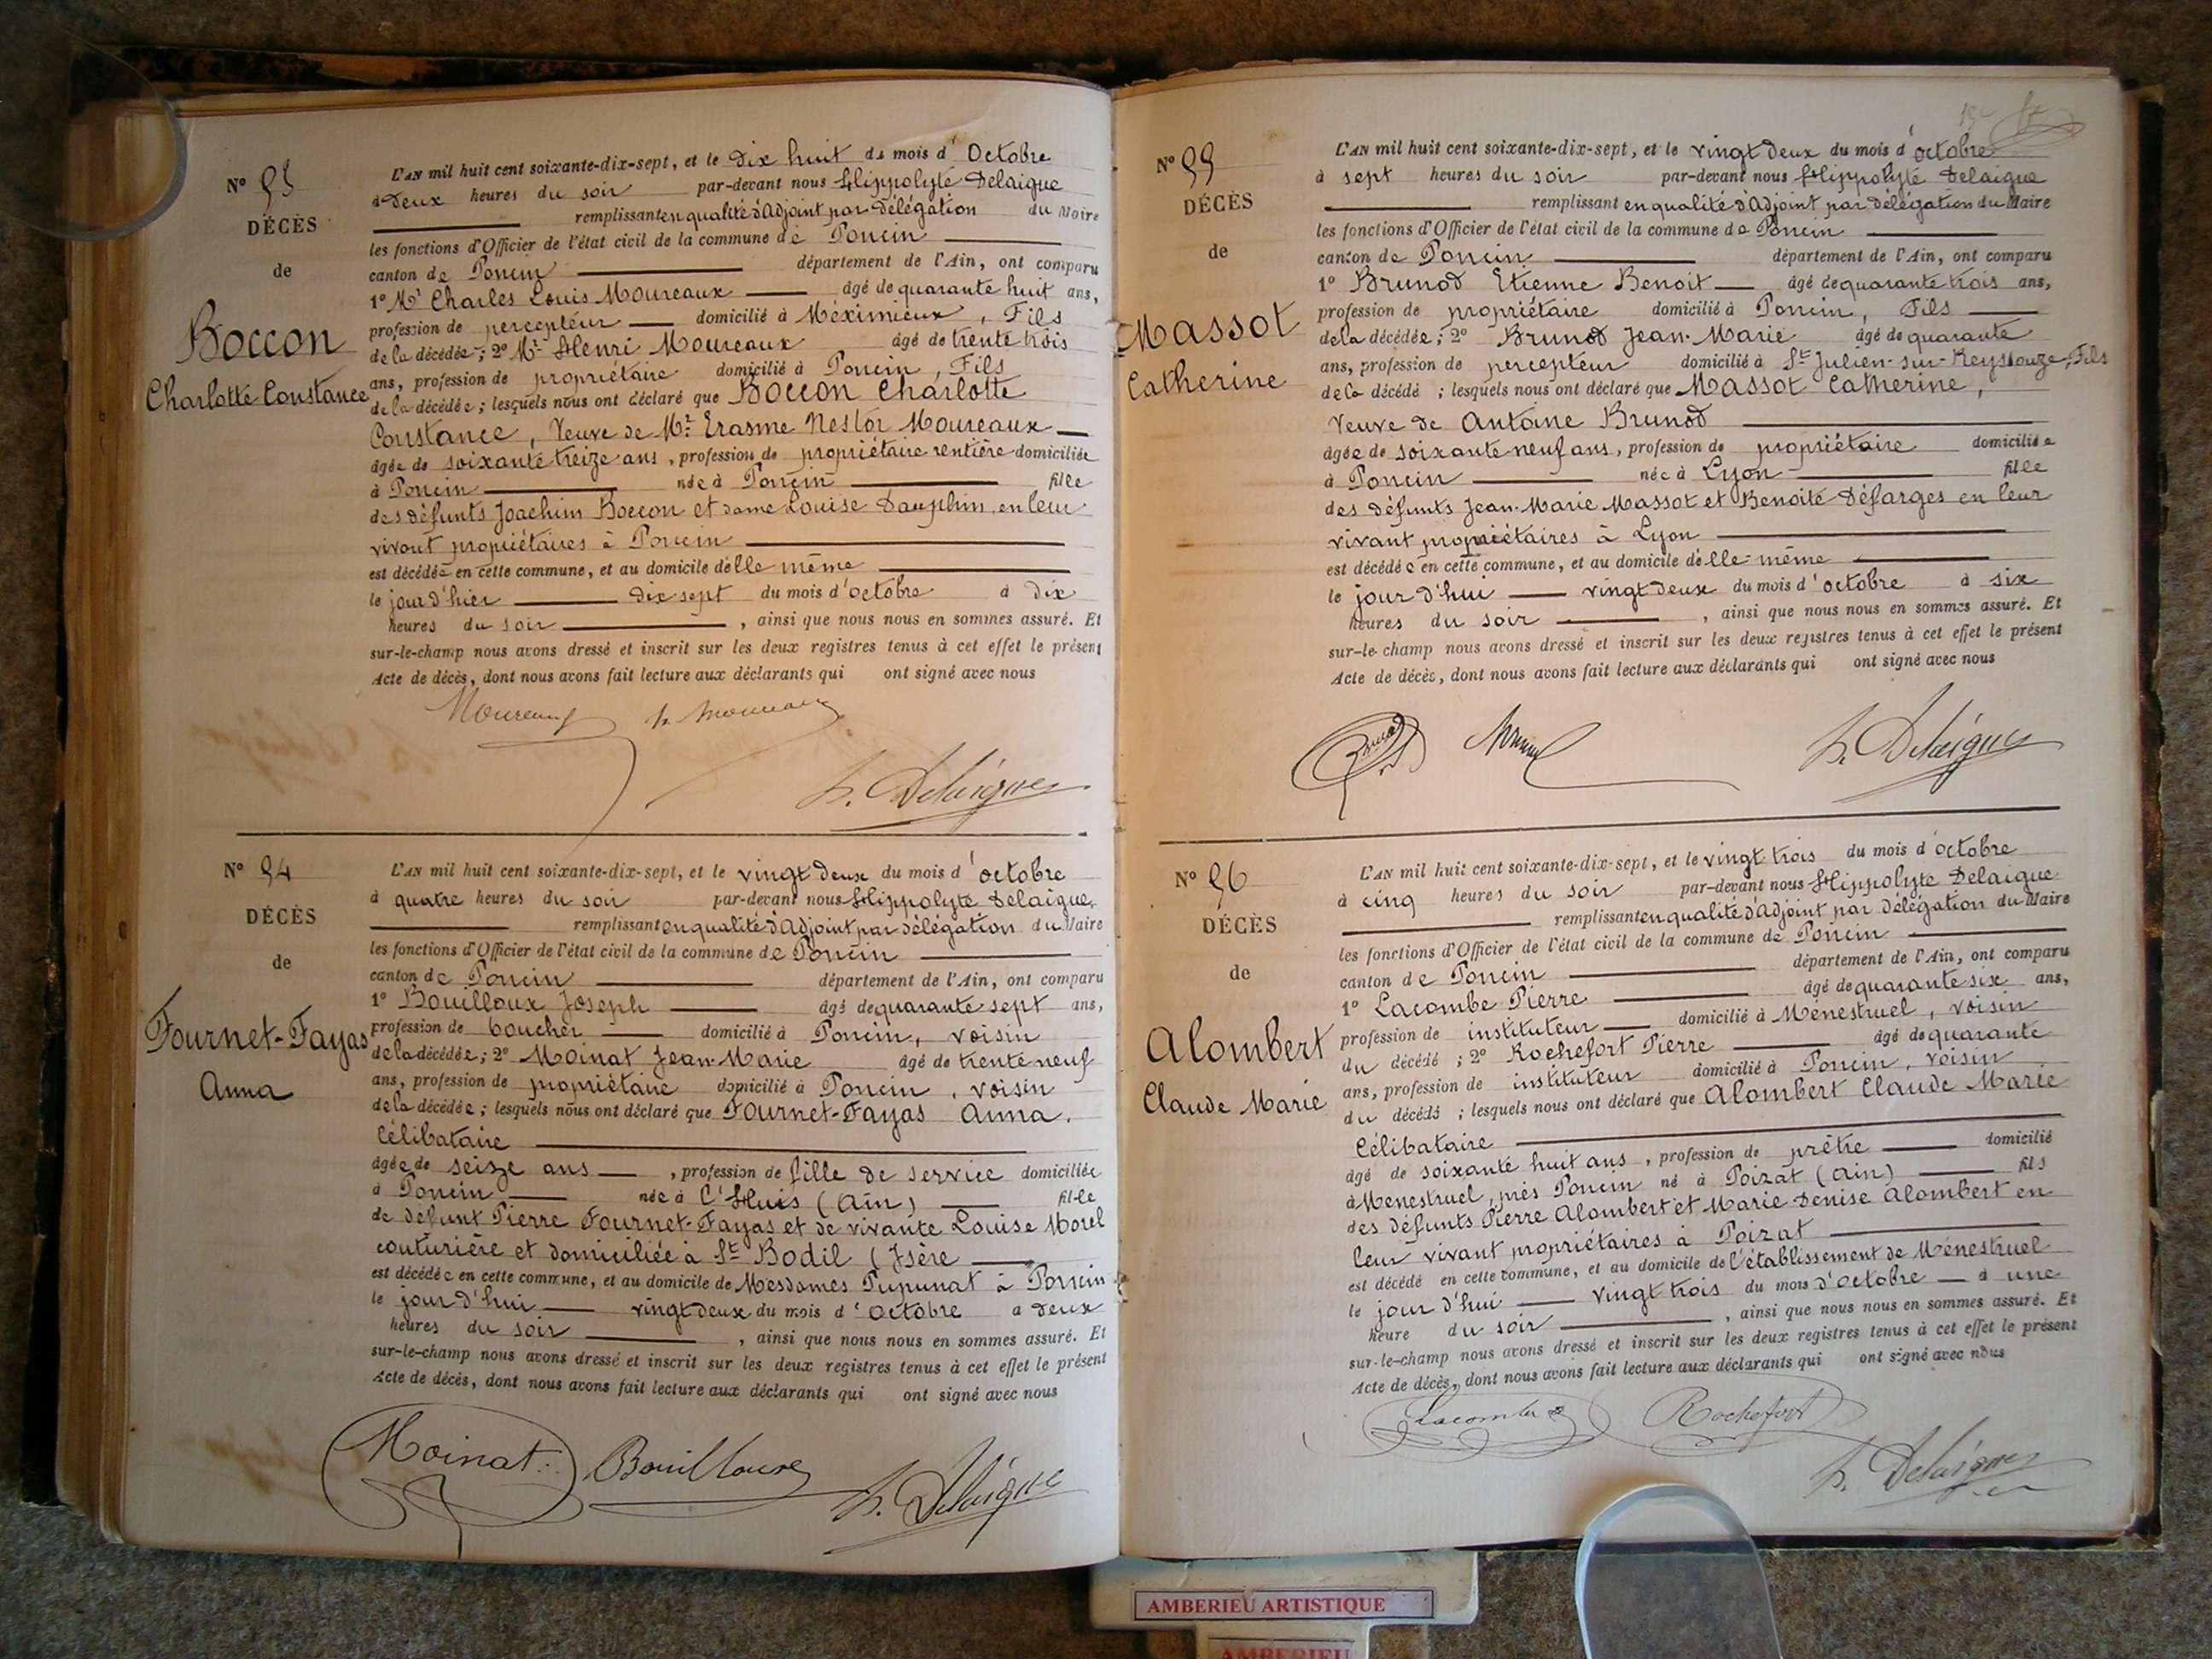 N° 93
DÉCÈS
de
Boccon
Charlotte Constance
L'AN mil huit cent soixante-dix-sept, et le dix huit du mois d'Octobre
à deux heures du soir par-devant nous Hippolyte Delaigue
remplissant en qualité d'adjoint par délégation du Maire
les fonctions d'Officier de l'état civil de la commune de Poncin
canton de Poncin département de l'Ain, ont comparu
1° Mr Charles Louis Moureaux âgé de quarante huit ans,
profession de percepteur domicilié à Méximieux, Fils
de la décédée; 2° Mr Henri Moureaux âgé de trente trois
ans, profession de propriétaire domicilié à Poncin, Fils
de la décédée; lesquels nous ont déclaré que Boccon Charlotte
Constance, Veuve de Mr Erasme Nestor Moureaux
âgée de soixante treize ans, profession de propriétaire rentière domiciliée
à Poncin née à Poncin fille
des défunts Joachim Boccon et dame Louise Dauphin, en leur
vivant propriétaires à Poncin
est décédée en cette commune, et au domicile d'elle même
le jour d'hier dix sept du mois d'octobre à dix
heures du soir, ainsi que nous nous en sommes assuré. Et
sur-le-champ nous avons dressé et inscrit sur les deux registres tenus à cet effet le présent
Acte de décès, dont nous avons fait lecture aux déclarants qui ont signé avec nous
Moureaux h. moureaux
h. Delaigue
N° 94
DÉCÈS
de
Fournet-Fayas
Anna
L'AN mil huit cent soixante-dix-sept, et le vingt deux du mois d'octobre
à quatre heures du soir par-devant nous Hippolyte Delaigue
remplissant en qualité d'adjoint par délégation du Maire
les fonctions d'Officier de l'état civil de la commune de Poncin
canton de Poncin département de l'Ain, ont comparu
1° Bouilloux Joseph âgé de quarante sept ans,
profession de boucher domicilié à Poncin, voisin
de la décédée; 2° Moinat Jean-Marie âgé de trente neuf
ans, profession de propriétaire domicilié à Poncin, voisin
de la décédée; lesquels nous ont déclaré que Fournet-Fayas Anna,
Célibataire
âgée de seize ans, profession de fille de service domiciliée
à Poncin née à l'Huis (Ain) fille
de défunt Pierre Fournet-Fayas et de vivante Louise Morel
couturière et domiciliée à St Bodil (Isère
est décédée en cette commune, et au domicile de Mesdames Pupunat à Poncin
le jour d'hui vingt deux du mois d'octobre à deux
heures du soir, ainsi que nous nous en sommes assuré. Et
sur-le-champ nous avons dressé et inscrit sur les deux registres tenus à cet effet le présent
Acte de décès, dont nous avons fait lecture aux déclarants qui ont signé avec nous
Moinat Bouilloux
h. Delaigue
N° 95
DÉCÈS
de
Massot
Catherine
L'AN mil huit cent soixante-dix-sept, et le vingt deux du mois d'octobre
à sept heures du soir par-devant nous Hippolyte Delaigue
remplissant en qualité d'adjoint par délégation du Maire
les fonctions d'Officier de l'état civil de la commune de Poncin
canton de Poncin département de l'Ain, ont comparu
1° Brunod Etienne Benoit âgé de quarante trois ans,
profession de propriétaire domicilié à Poncin, Fils
de la décédée; 2° Brunod Jean-Marie âgé de quarante
ans, profession de percepteur domicilié à St Julien-sur-Reyssouze, Fils
de la décédé; lesquels nous ont déclaré que Massot Catherine,
Veuve de Antoine Brunod
âgée de soixante neuf ans, profession de propriétaire domiciliée
à Poncin née à Lyon fille
des défunts Jean-Marie Massot et Benoite Défarges en leur
vivant propriétaires à Lyon
est décédée en cette commune, et au domicile d'elle-même
le jour d'hui vingt deux du mois d'octobre à six
heures du soir, ainsi que nous nous en sommes assuré. Et
sur-le-champ nous avons dressé et inscrit sur les deux registres tenus à cet effet le présent
Acte de décès, dont nous avons fait lecture aux déclarants qui ont signé avec nous
Brunod
h. Delaigue
N° 96
DÉCÈS
de
Alombert
Claude Marie
L'AN mil huit cent soixante-dix-sept, et le vingt trois du mois d'octobre
à cinq heures du soir par-devant nous Hippolyte Delaigue
remplissant en qualité d'adjoint par délégation du Maire
les fonctions d'Officier de l'état civil de la commune de Poncin
canton de Poncin département de l'Ain, ont comparu
1° Lacombe Pierre âgé de quarante six ans,
profession de instituteur domicilié à Ménestruel, voisin
du décédé; 2° Rochefort Pierre âgé de quarante
ans, profession de instituteur domicilié à Poncin, voisin
du décédé; lesquels nous ont déclaré que Alombert Claude Marie
Célibataire
âgé de soixante huit ans, profession de prêtre domicilié
à Menestruel, près Poncin né à Poizat (Ain) fils
des défunts Pierre Alombert et Marie Denise Alombert en
leur vivant propriétaires à Poizat
est décédé en cette commune, et au domicile de l'établissement de Ménestruel
le jour d'hui vingt trois du mois d'octobre à une
heure du soir, ainsi que nous nous en sommes assuré. Et
sur-le-champ nous avons dressé et inscrit sur les deux registres tenus à cet effet le présent
Acte de décès, dont nous avons fait lecture aux déclarants qui ont signé avec nous
Lacombe Rochefort
h. Delaigue
AMBERIEU ARTISTIQUE
AMBERIEU